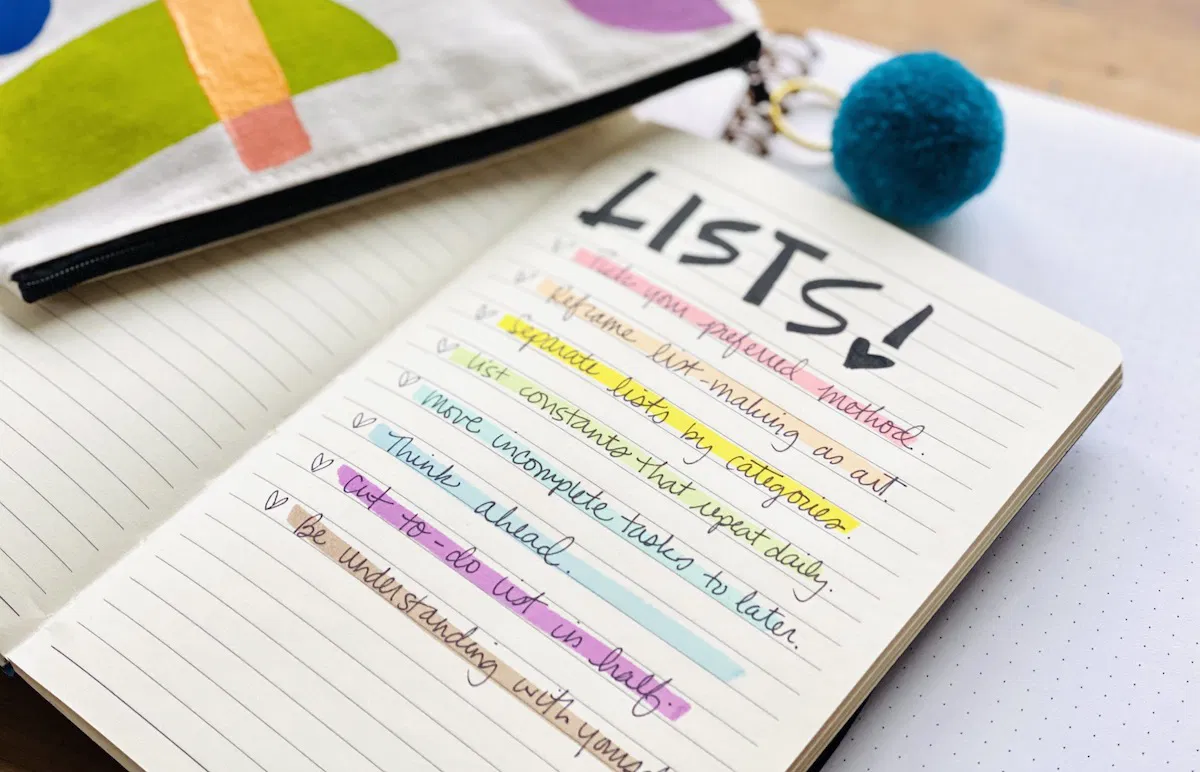 LISTS!
your preferred method.
Reframe list-making as art.
Separate lists by categories.
List constants that repeat daily.
Move incomplete tasks to later.
Think ahead.
Cut to-do list in half.
Be understanding with